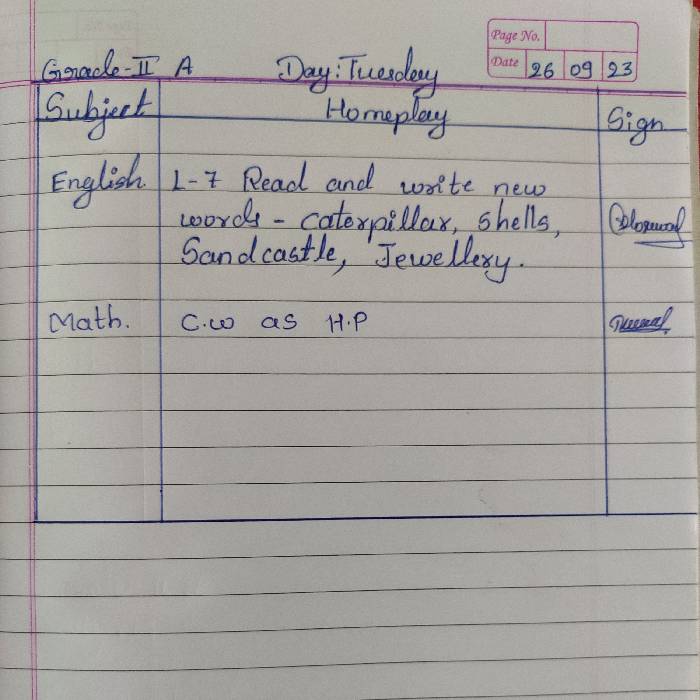 Page No.
Date 26 09 23
Grade-II A Day: Tuesday
Subject Homeplay Sign
English. L-7 Read and write new
words - caterpillar, shells,
Sandcastle, Jewellery.
Math. C.W as H.P